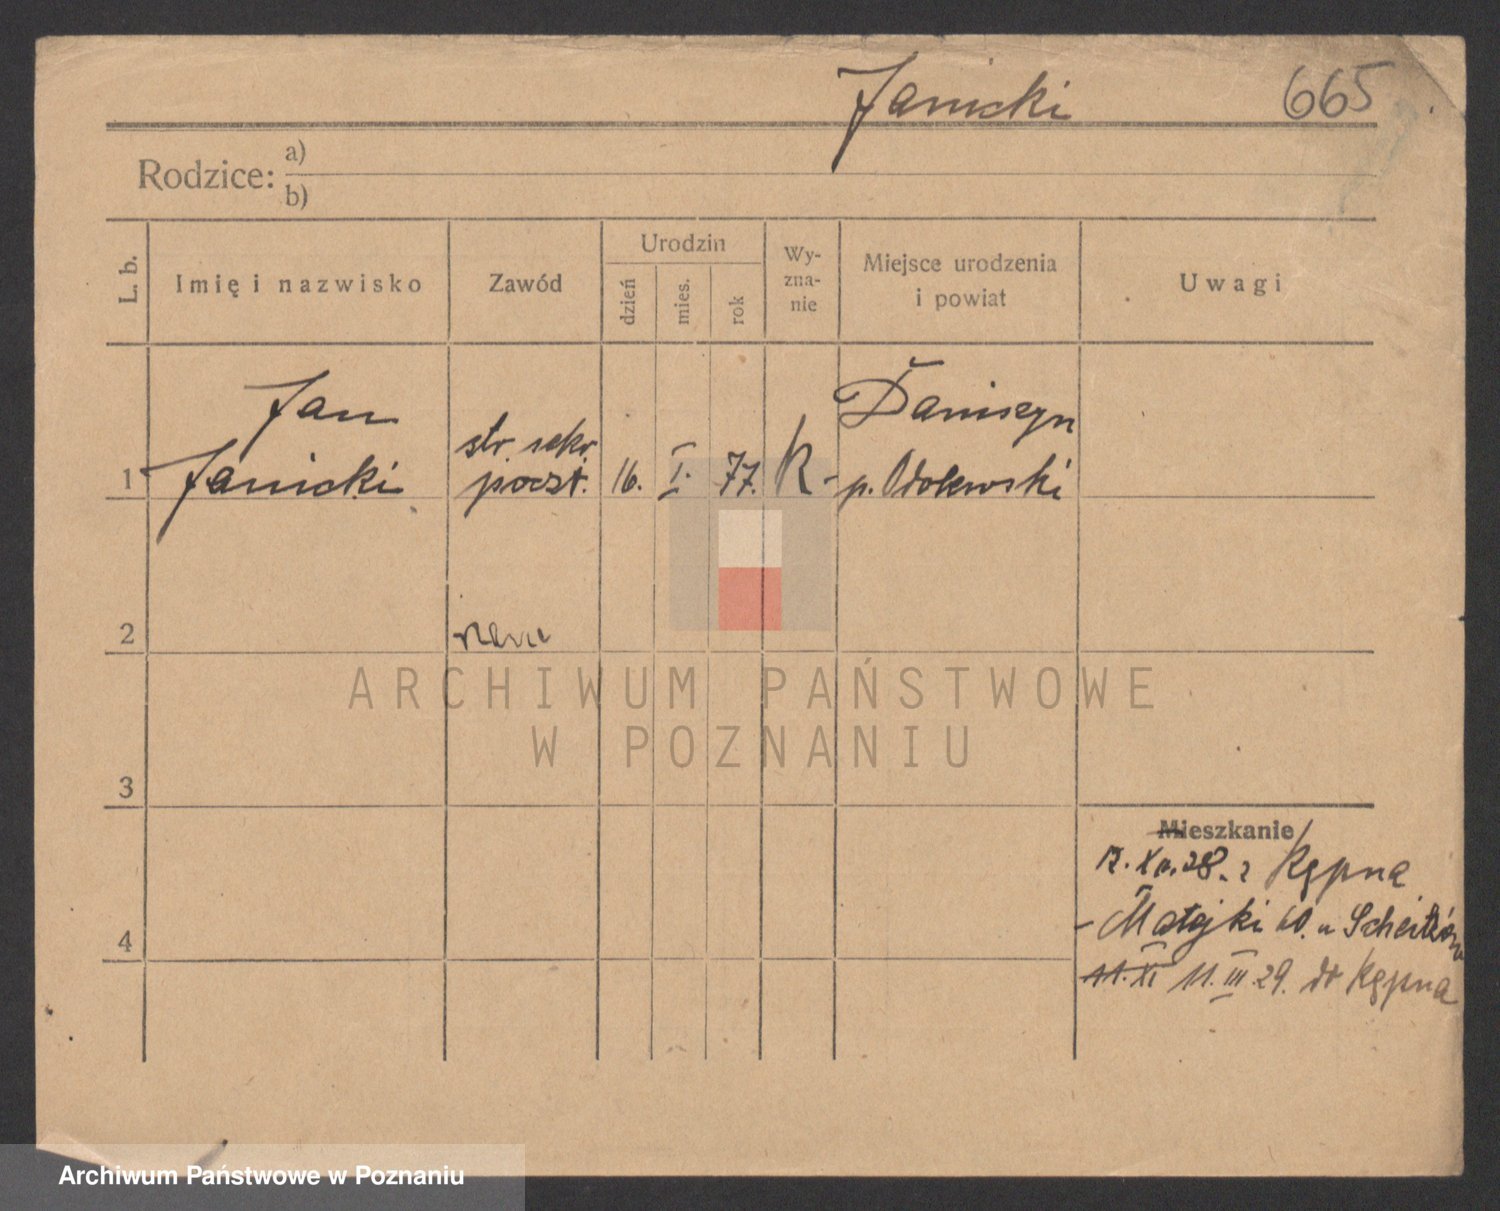 Janicki 665
Rodzice: a)
b)
L. b.
Imię i nazwisko
Zawód
Urodzin
dzień
mies.
rok
Wy-
zna-
nie
Miejsce urodzenia
i powiat
Uwagi
1
Jan
Janicki
str. sekr.
poczt.
16. I. 77. R -
Daniszyn
p. Odolewski
2
3
4
Mieszkanie
12. XII. 28. z Kępna
- Matejki 60. u
11. XI 11. III. 29. do Kępna
ARCHIWUM PAŃSTWOWE
W POZNANIU
Archiwum Państwowe w Poznaniu